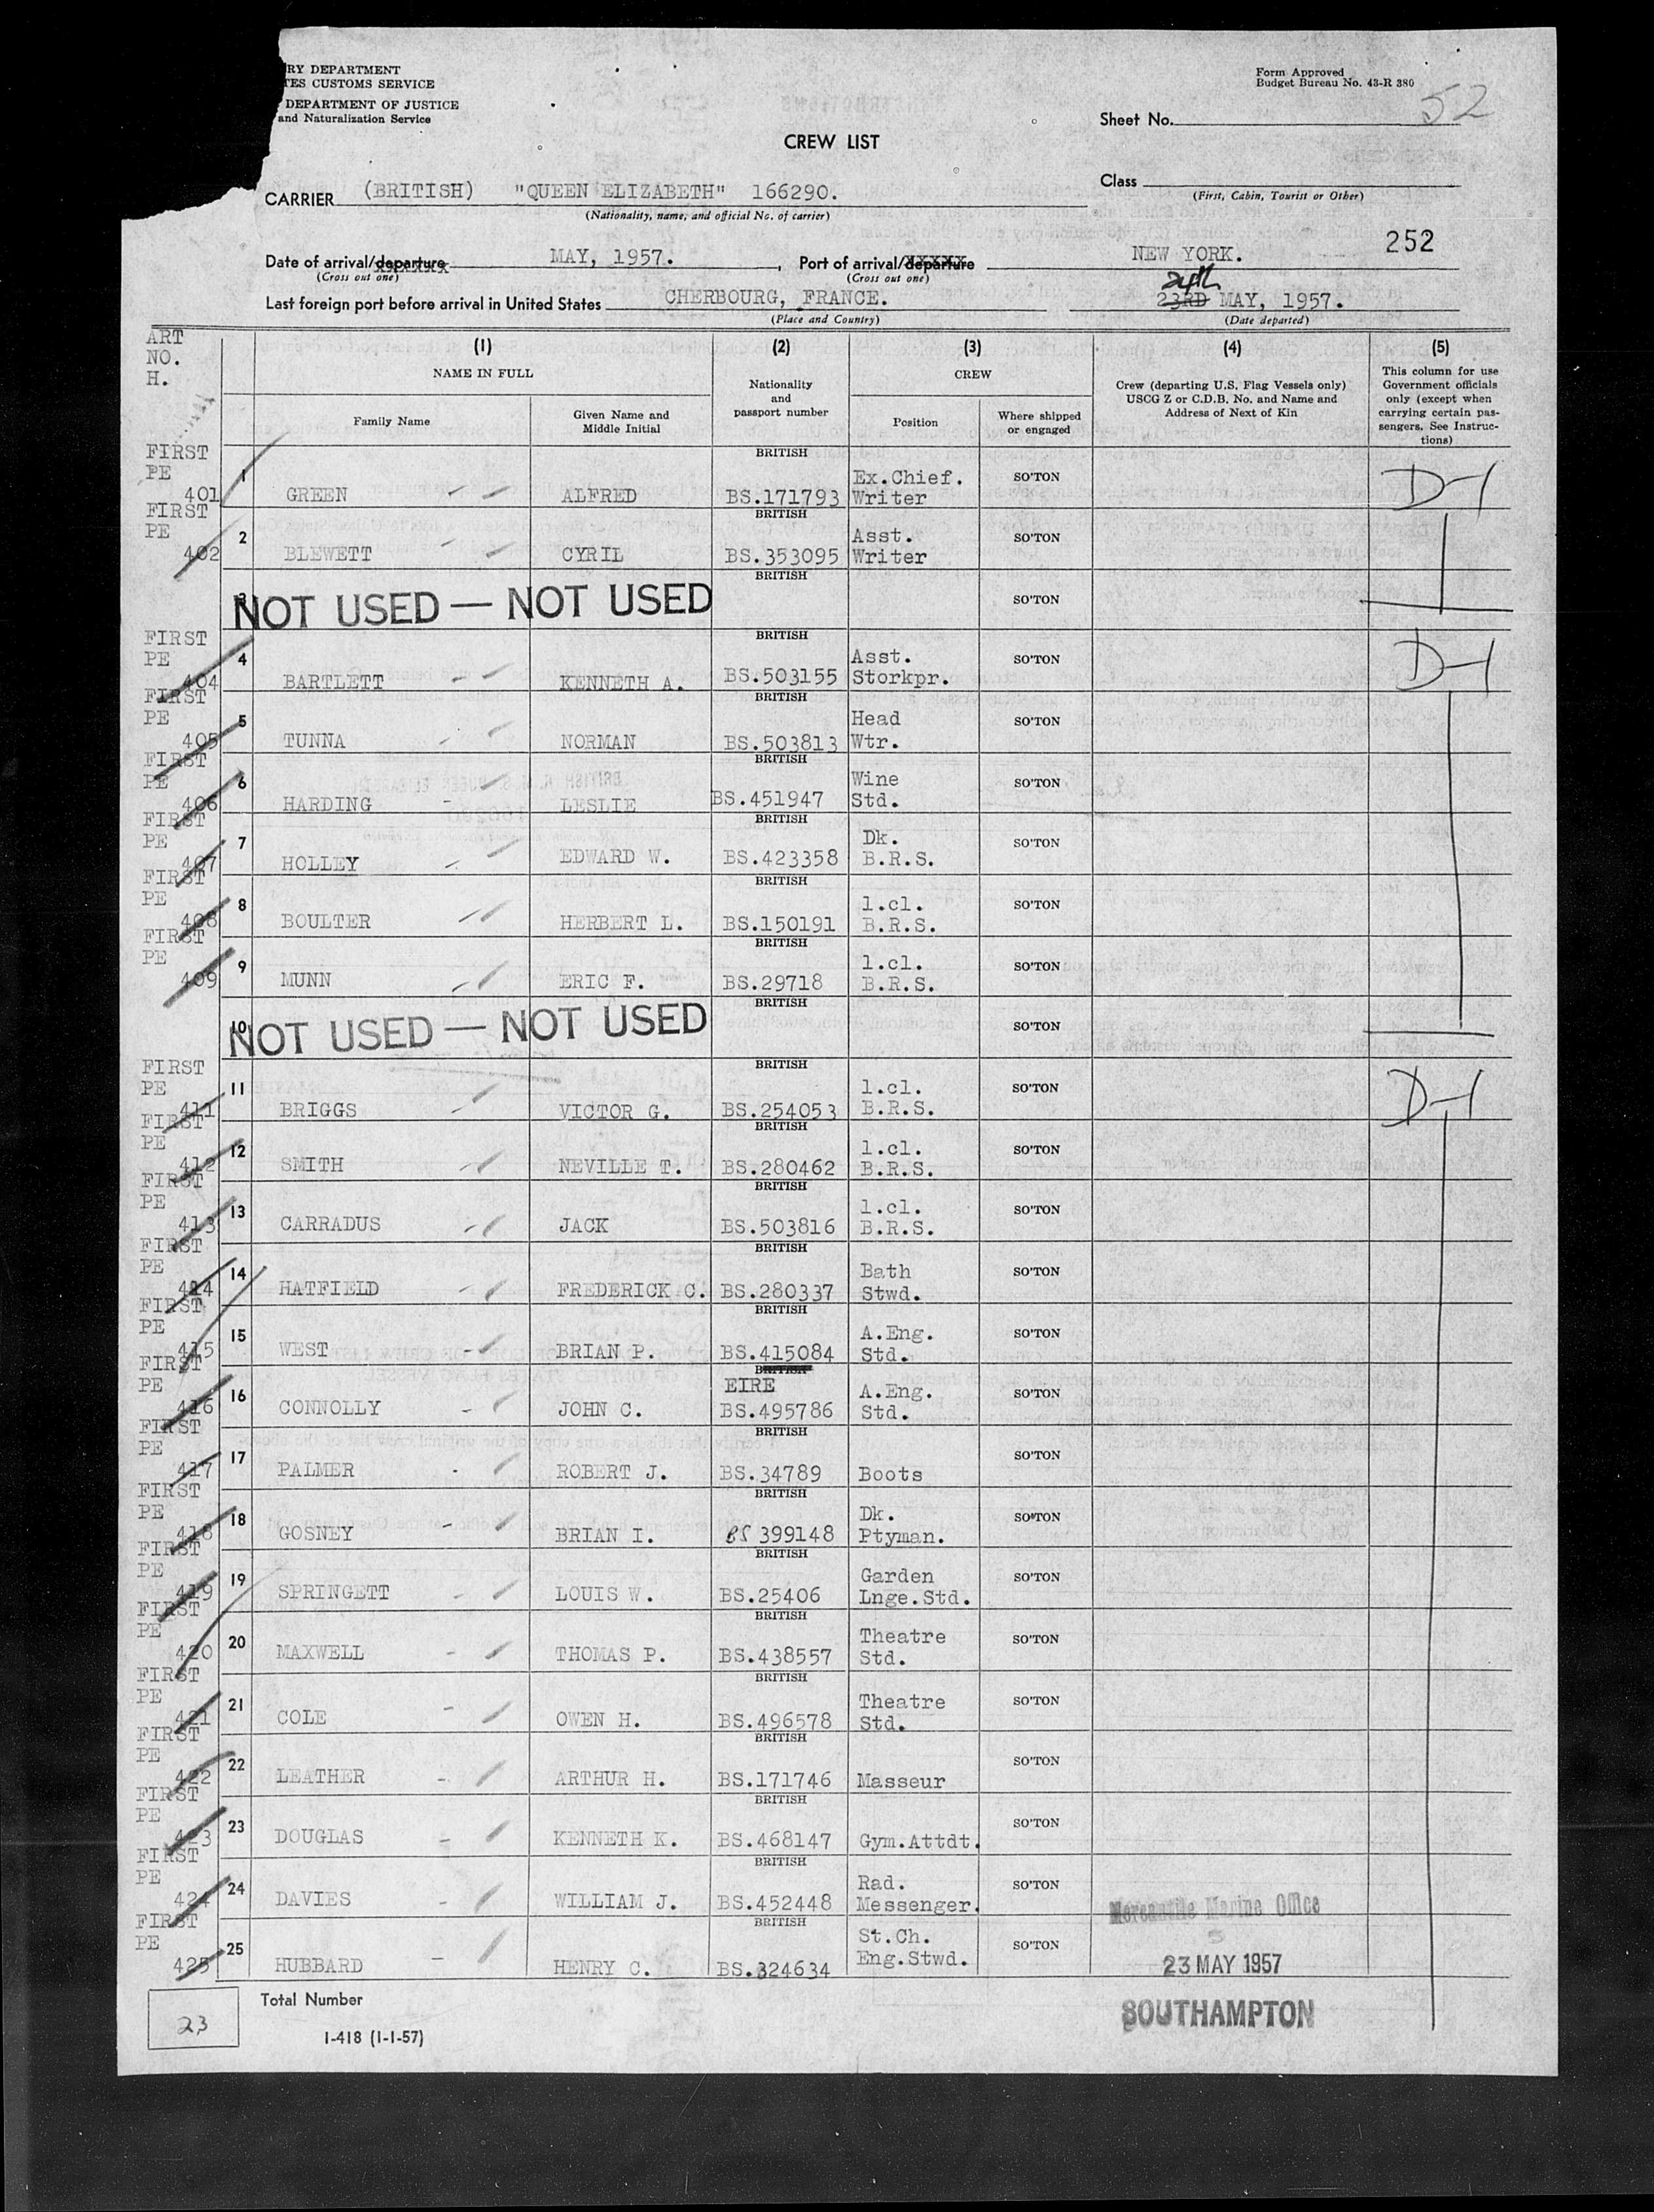 RY DEPARTMENT
TES CUSTOMS SERVICE
DEPARTMENT OF JUSTICE
and Naturalization Service
Form Approved
Budget Bureau No. 43-R 380
Sheet No. 52
CREW LIST
Class
(First, Cabin, Tourist or Other)
CARRIER (BRITISH) "QUEEN ELIZABETH" 166290.
(Nationality, name, and official No. of carrier)
252
Date of arrival/departure MAY, 1957. , Port of arrival/departure NEW YORK.
(Cross out one) (Cross out one)
24th
Last foreign port before arrival in United States CHERBOURG, FRANCE. 23RD MAY, 1957.
(Place and Country) (Date departed)
ART
NO.
H.
(1) (2) (3) (4) (5)
NAME IN FULL
Family Name
Given Name and
Middle Initial
Nationality
and
passport number
CREW
Position
Where shipped
or engaged
Crew (departing U.S. Flag Vessels only)
USCG Z or C.D.B. No. and Name and
Address of Next of Kin
This column for use
Government officials
only (except when
carrying certain pas-
sengers. See Instruc-
tions)
FIRST BRITISH
PE 1 Ex.Chief. SO'TON D-1
401 GREEN ALFRED BS.171793 Writer
FIRST BRITISH
PE 2 Asst. SO'TON
402 BLEWETT CYRIL BS.353095 Writer
BRITISH
3 NOT USED — NOT USED SO'TON
FIRST BRITISH
PE 4 Asst. SO'TON D-1
404 BARTLETT KENNETH A. BS.503155 Storkpr.
FIRST BRITISH
PE 5 Head SO'TON
405 TUNNA NORMAN BS.503813 Wtr.
FIRST BRITISH
PE 6 Wine SO'TON
406 HARDING LESLIE BS.451947 Std.
FIRST BRITISH
PE 7 Dk. SO'TON
407 HOLLEY EDWARD W. BS.423358 B.R.S.
FIRST BRITISH
PE 8 1.cl. SO'TON
408 BOULTER HERBERT L. BS.150191 B.R.S.
FIRST BRITISH
PE 9 1.cl. SO'TON
409 MUNN ERIC F. BS.29718 B.R.S.
BRITISH
10 NOT USED — NOT USED SO'TON
FIRST BRITISH
PE 11 1.cl. SO'TON D-1
411 BRIGGS VICTOR G. BS.254053 B.R.S.
FIRST BRITISH
PE 12 1.cl. SO'TON
412 SMITH NEVILLE T. BS.280462 B.R.S.
FIRST BRITISH
PE 13 1.cl. SO'TON
413 CARRADUS JACK BS.503816 B.R.S.
FIRST BRITISH
PE 14 Bath SO'TON
414 HATFIELD FREDERICK C. BS.280337 Stwd.
FIRST BRITISH
PE 15 A.Eng. SO'TON
415 WEST BRIAN P. BS.415084 Std.
FIRST BRITISH
PE 16 EIRE A.Eng. SO'TON
416 CONNOLLY JOHN C. BS.495786 Std.
FIRST BRITISH
PE 17 SO'TON
417 PALMER ROBERT J. BS.34789 Boots
FIRST BRITISH
PE 18 Dk. SO'TON
418 GOSNEY BRIAN I. BS 399148 Ptyman.
FIRST BRITISH
PE 19 Garden SO'TON
419 SPRINGETT LOUIS W. BS.25406 Lnge.Std.
FIRST BRITISH
PE 20 Theatre SO'TON
420 MAXWELL THOMAS P. BS.438557 Std.
FIRST BRITISH
PE 21 Theatre SO'TON
421 COLE OWEN H. BS.496578 Std.
FIRST BRITISH
PE 22 SO'TON
422 LEATHER ARTHUR H. BS.171746 Masseur
FIRST BRITISH
PE 23 SO'TON
423 DOUGLAS KENNETH K. BS.468147 Gym.Attdt.
FIRST BRITISH
PE 24 Rad. SO'TON
424 DAVIES WILLIAM J. BS.452448 Messenger.
FIRST BRITISH
PE 25 St.Ch. SO'TON
425 HUBBARD HENRY C. BS.324634 Eng.Stwd.
Mercantile Marine Office
23 MAY 1957
SOUTHAMPTON
23 Total Number
I-418 (1-1-57)